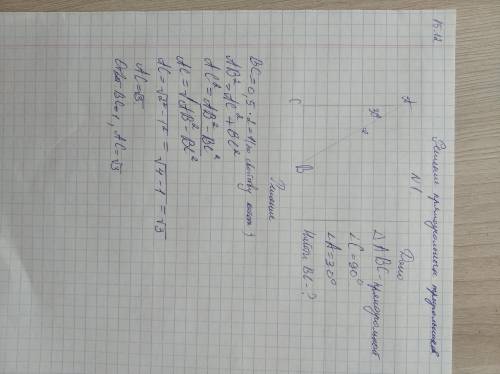 15.12
Решение прямоугольных треугольников
N1
Дано
△ABC - прямоугольный
∠C = 90°
∠A = 30°
Найти BC - ?
A
30°
2
C
B
Решение
BC = 0,5 · 2 = 1 (по свойству
AB² = AC² + BC²
AC² = AB² - BC²
AC = √AB² - BC²
AC = √2² - 1² = √4 - 1 = √3
AC = √3
Ответ BC = 1, AC = √3